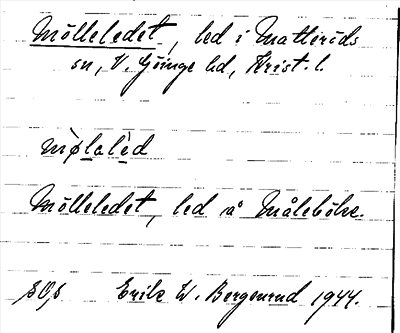 Mölleledet, led i Matteröds
sn, V. Göinge hd, Krist. l.
mø̀lalèd
Mölleledet, led å Målebölie.
SOS Erik W. Bergenrud 1944.